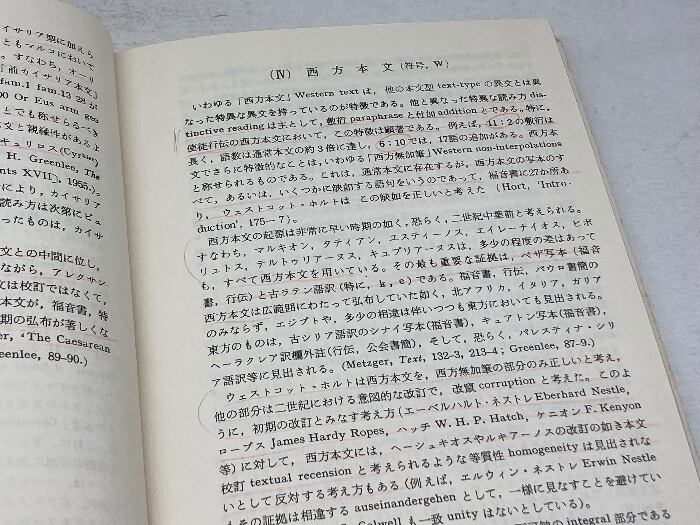 イサリア型に加えら
ともマルコにおいて
すなわち、オーリ
「前カイサリア本文」
fam.1 fam-13 28 が
00 Or Eus arm geo
とでも称せらるべき
文と親縁性があるよ
キュリロス(Cyrbus)
H. Greenlee, The
ents XVII], 1955.)。
により、カイサリア
読み方は次第にビュ
ったものは、カイサ
文との中間に位し,
ながら,アレクサン
文は校訂ではなくて,
本文が,福音書,特
期の弘布が著しくな
er, 'The Caesarean
eenlee, 89–90.)
(Ⅳ) 西方本文(符号, W)
いわゆる「西方本文」Western text は,他の本文型 text-type の異文とは異
なった特異な異文を持っているのが特徴である。他と異なった特異な読み方 dis-
tinctive reading は主として,敷衍 paraphrase と付加 addition とである。特に,
使徒行伝の西方本文において,この特徴は顕著である。例えば,11:2の敷衍は
長く,語数は通常本文の約3倍に達し,6:10では,17語の追加がある。西方本
文でさらに特徴的なことは,いわゆる「西方無加筆」Western non-interpolations
と称せられるものである。これは,通常本文に存在するが,西方本文の写本のす
べて,あるいは,いくつかに欠如する語句をいうのであって,福音書に27か所あ
り,ウェストコット・ホルトは この欠如を正しいと考えた (Hort, 'Intro-
duction', 175—7)。
西方本文の起源は非常に早い時期の如く,恐らく,二世紀中葉前と考えられる。
すなわち,マルキオン,タティアン,エスティーノス,エイレーナイオス,ヒポ
リュトス,テルトゥリアーヌス,キュプリアーヌスは,多少の程度の差はあって
も,すべて西方本文を用いている。その最も重要な証拠は,ベザ写本(福音
書,行伝)と古ラテン語訳(特に,k, e)である。福音書,行伝,パウロ書簡の
西方本文は広範囲にわたって弘布していた如く,北アフリカ,イタリア,ガリア
のみならず,エジプトや,多少の相違は伴いつつも東方においても見出される。
東方のものは,古シリア語訳のシナイ写本(福音書),キュアトン写本(福音書),
ヘーラクレア訳欄外注(行伝,公会書簡),そして,恐らく,パレスティナ・シリ
ア語訳等に見出される。(Metzger, Text, 132–3, 213–4; Greenlee, 87–9.)
ウェストコット・ホルトは西方本文を,西方無加筆の部分のみ正しいと考え,
他の部分は二世紀における意図的な改訂で,改竄 corruption と考えた。このよ
うに,初期の改訂とみなす考え方(エーベルハルト・ネストレ Eberhard Nestle,
ロープス James Hardy Ropes, ハッチ W. H. P. Hatch, ケニオン F. Kenyon
等)に対して,西方本文には,ヘーシュキオスやルキアーノスの改訂の如き本文
校訂 textual recension と考えられるような等質性 homogeneity は見出されな
いとして反対する考え方もある(例えば,エルウィン・ネストレ Erwin Nestle
その証拠は相違する auseinandergehen として,一様に見なすことを避けてい
Colwell も一致 unity はないとしている)。
integral 部分である